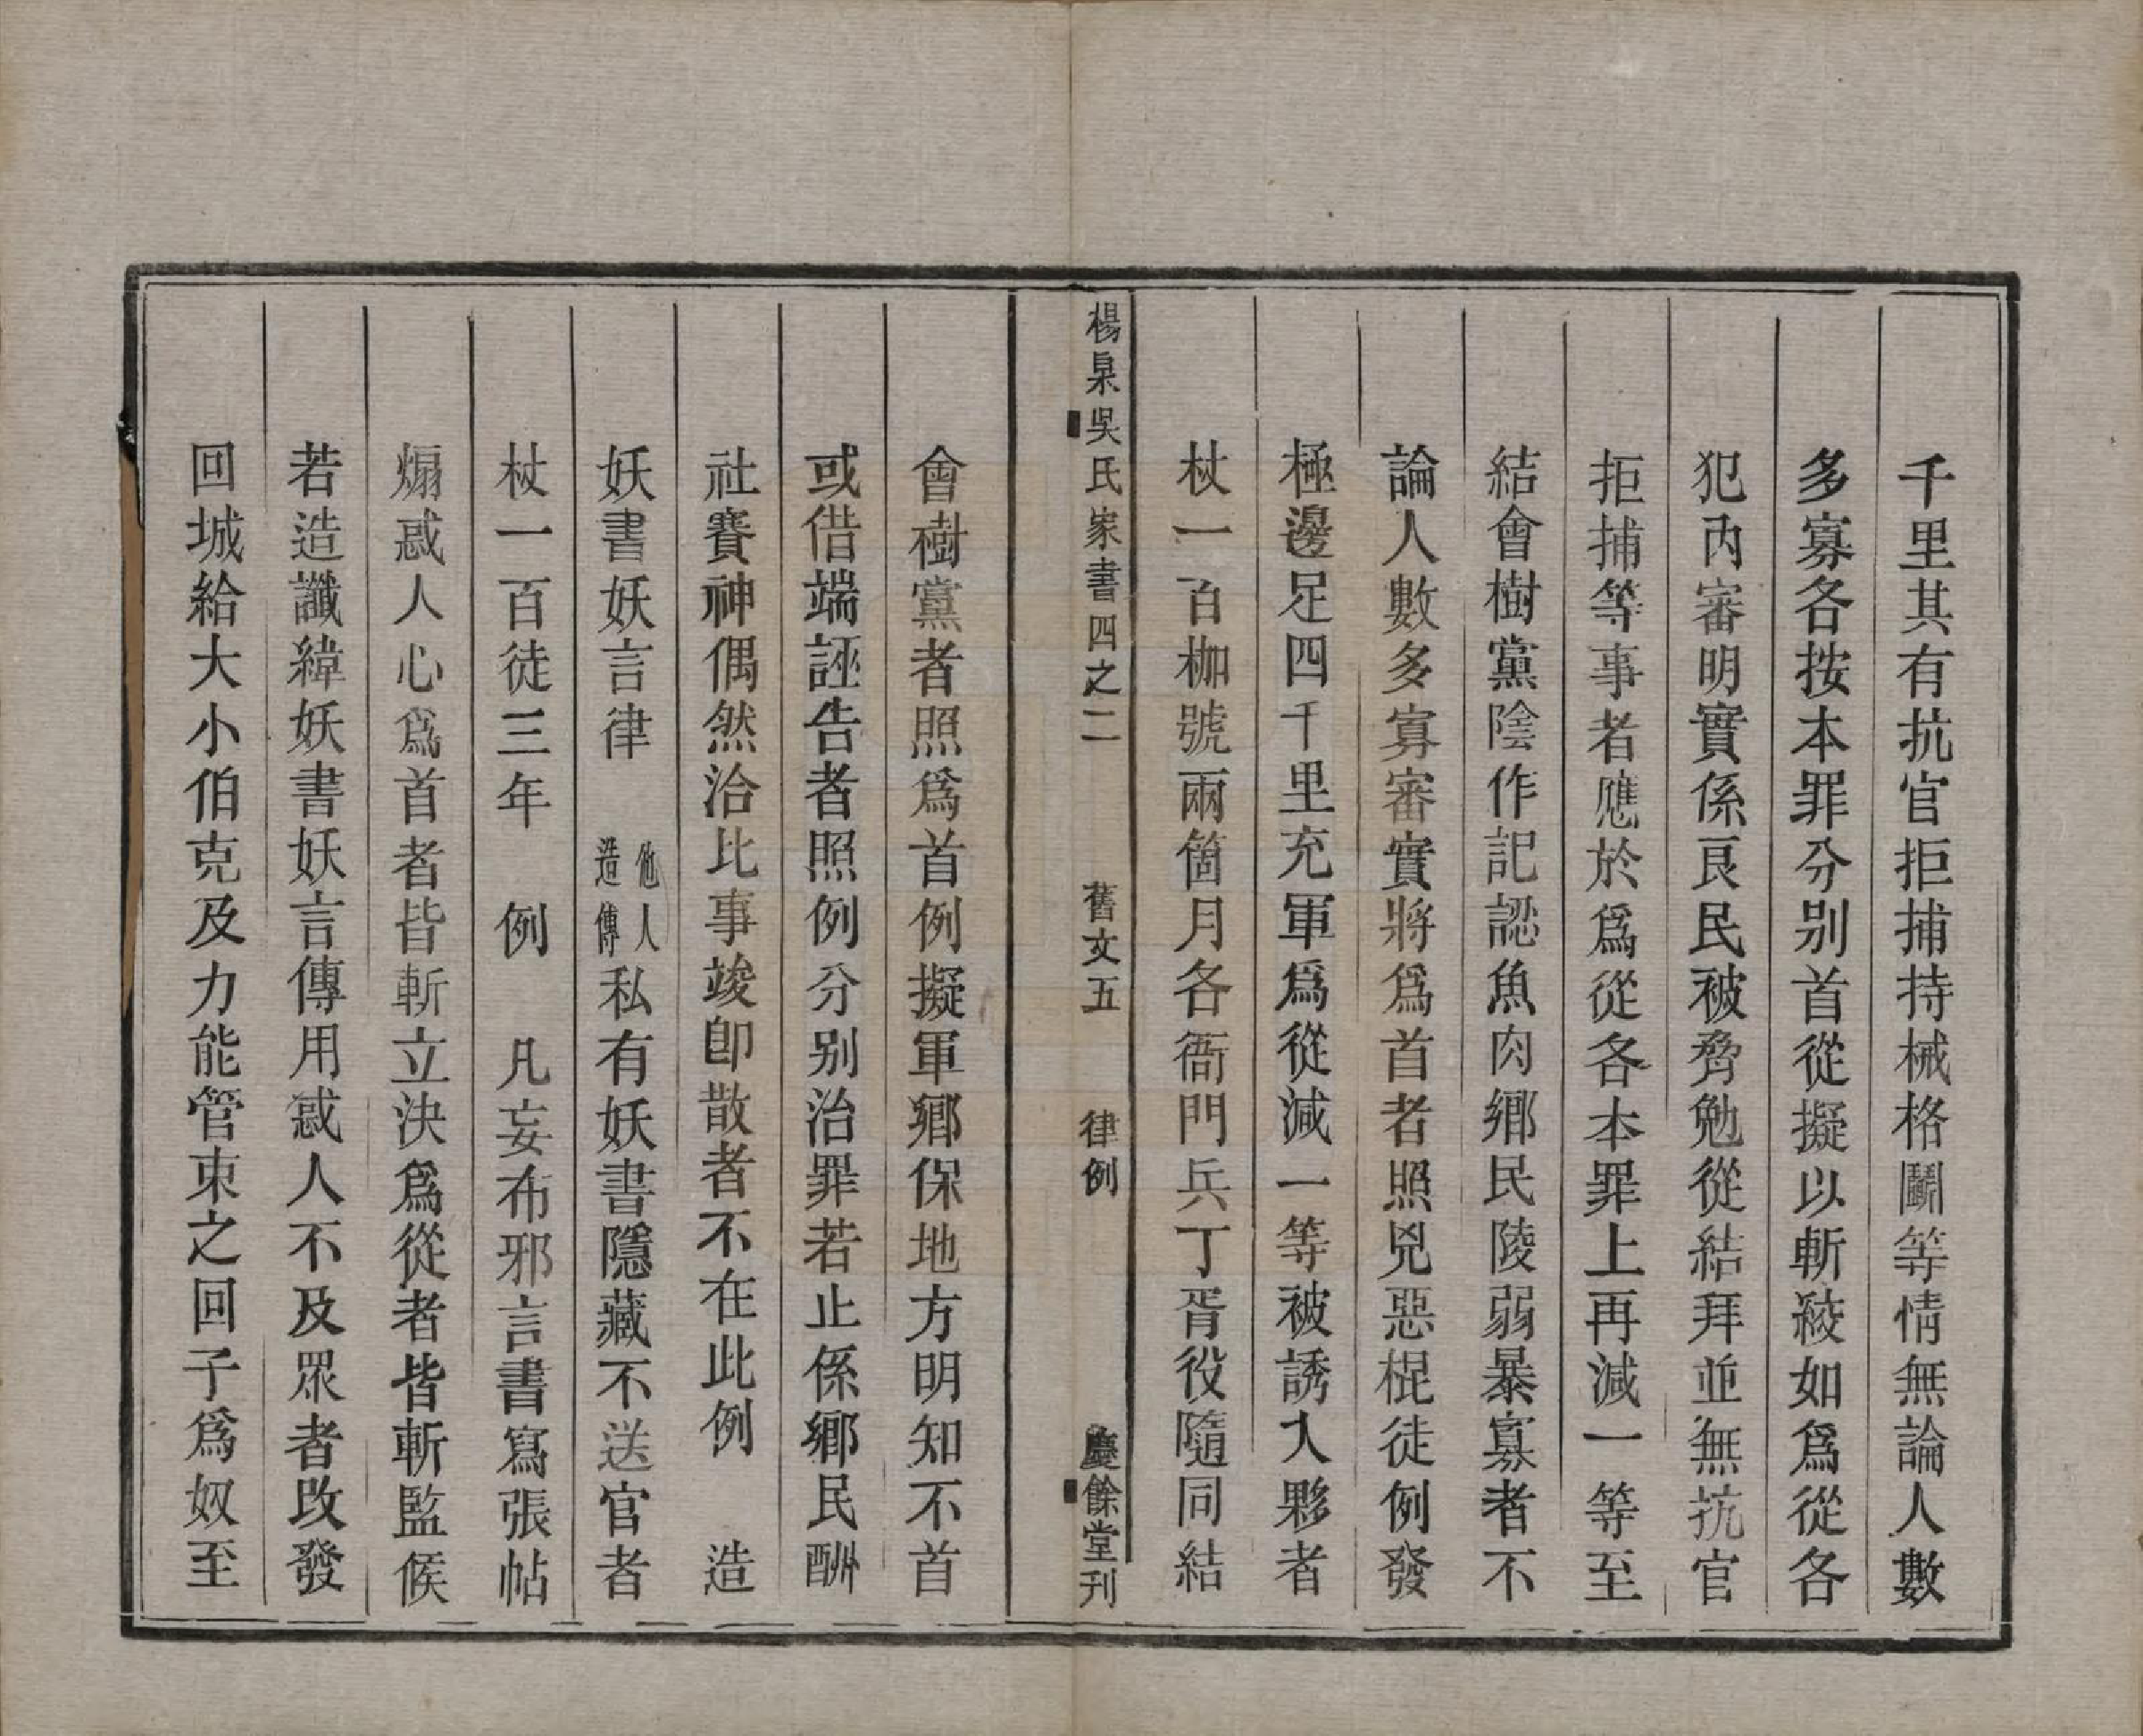 千里其有抗官拒捕持械格鬭等情無論人數
多寡各按本罪分別首從擬以斬絞如爲從各
犯內審明實係良民被脅勉從結拜並無抗官
拒捕等事者應於爲從各本罪上再減一等至
結會樹黨陰作記認魚肉鄉民陵弱暴寡者不
論人數多寡審實將爲首者照兇惡棍徒例發
極邊足四千里充軍爲從減一等被誘入夥者
杖一百枷號兩箇月各衙門兵丁胥役隨同結
楊梟吳氏家書四之二 舊文五 律例 慶餘堂刊
會樹黨者照爲首例擬軍鄉保地方明知不首
或借端誣告者照例分別治罪若止係鄉民酬
社賽神偶然洽比事竣卽散者不在此例 造
妖書妖言律 他人造傳私有妖書隱藏不送官者
杖一百徒三年 例 凡妄布邪言書寫張帖
煽惑人心爲首者皆斬立決爲從者皆斬監候
若造讖緯妖書妖言傳用惑人不及眾者改發
回城給大小伯克及力能管束之回子爲奴至